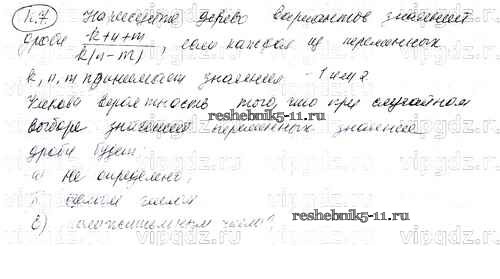 К.7 Нарисуйте дерево вариантов значений
дроби k+n+m / k(n-m), если каждая из переменных
k, n, m принимает значения -1 или 2
Какова вероятность того, что при случайном
выборе значений переменных значение
reshebnik5-11.ru
дроби будет:
а) не определено;
целым числом
reshebnik5-11.ru
положительным числом?
vipgdz.ru